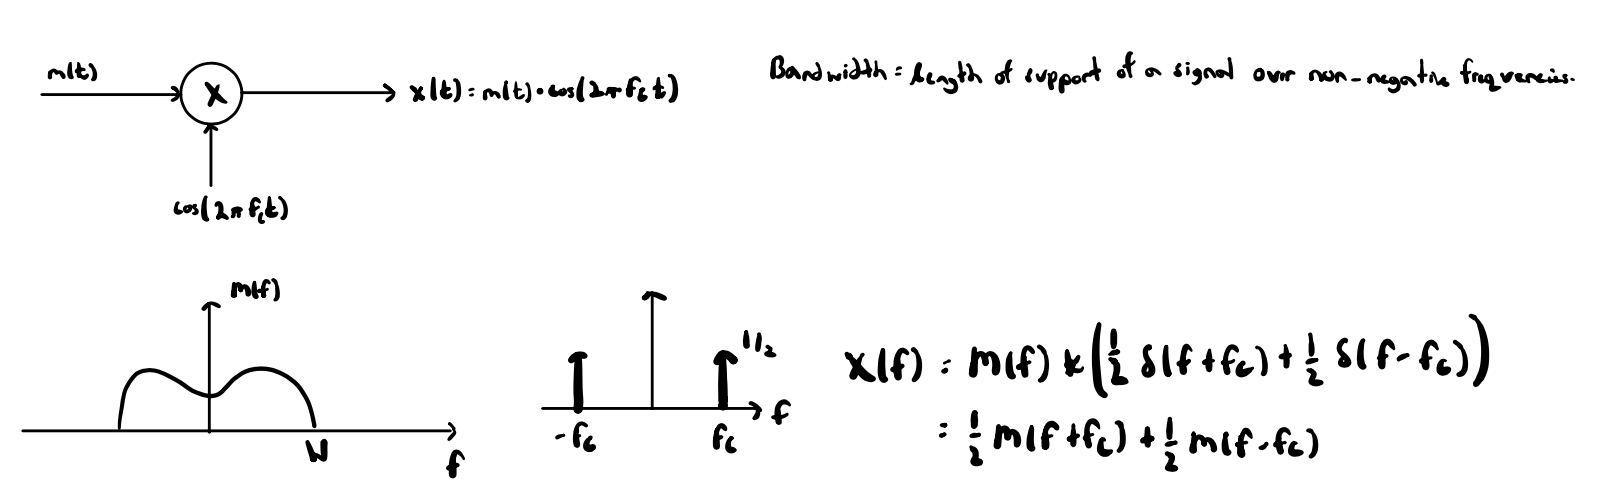 m(t)
X
x(t) = m(t) · cos(2π f_c t)
cos(2π f_c t)
Bandwidth = length of support of a signal over non-negative frequencies.
M(f)
W
f
1/2
-f_c
f_c
f
X(f) = M(f) * (1/2 δ(f + f_c) + 1/2 δ(f - f_c))
= 1/2 M(f + f_c) + 1/2 M(f - f_c)